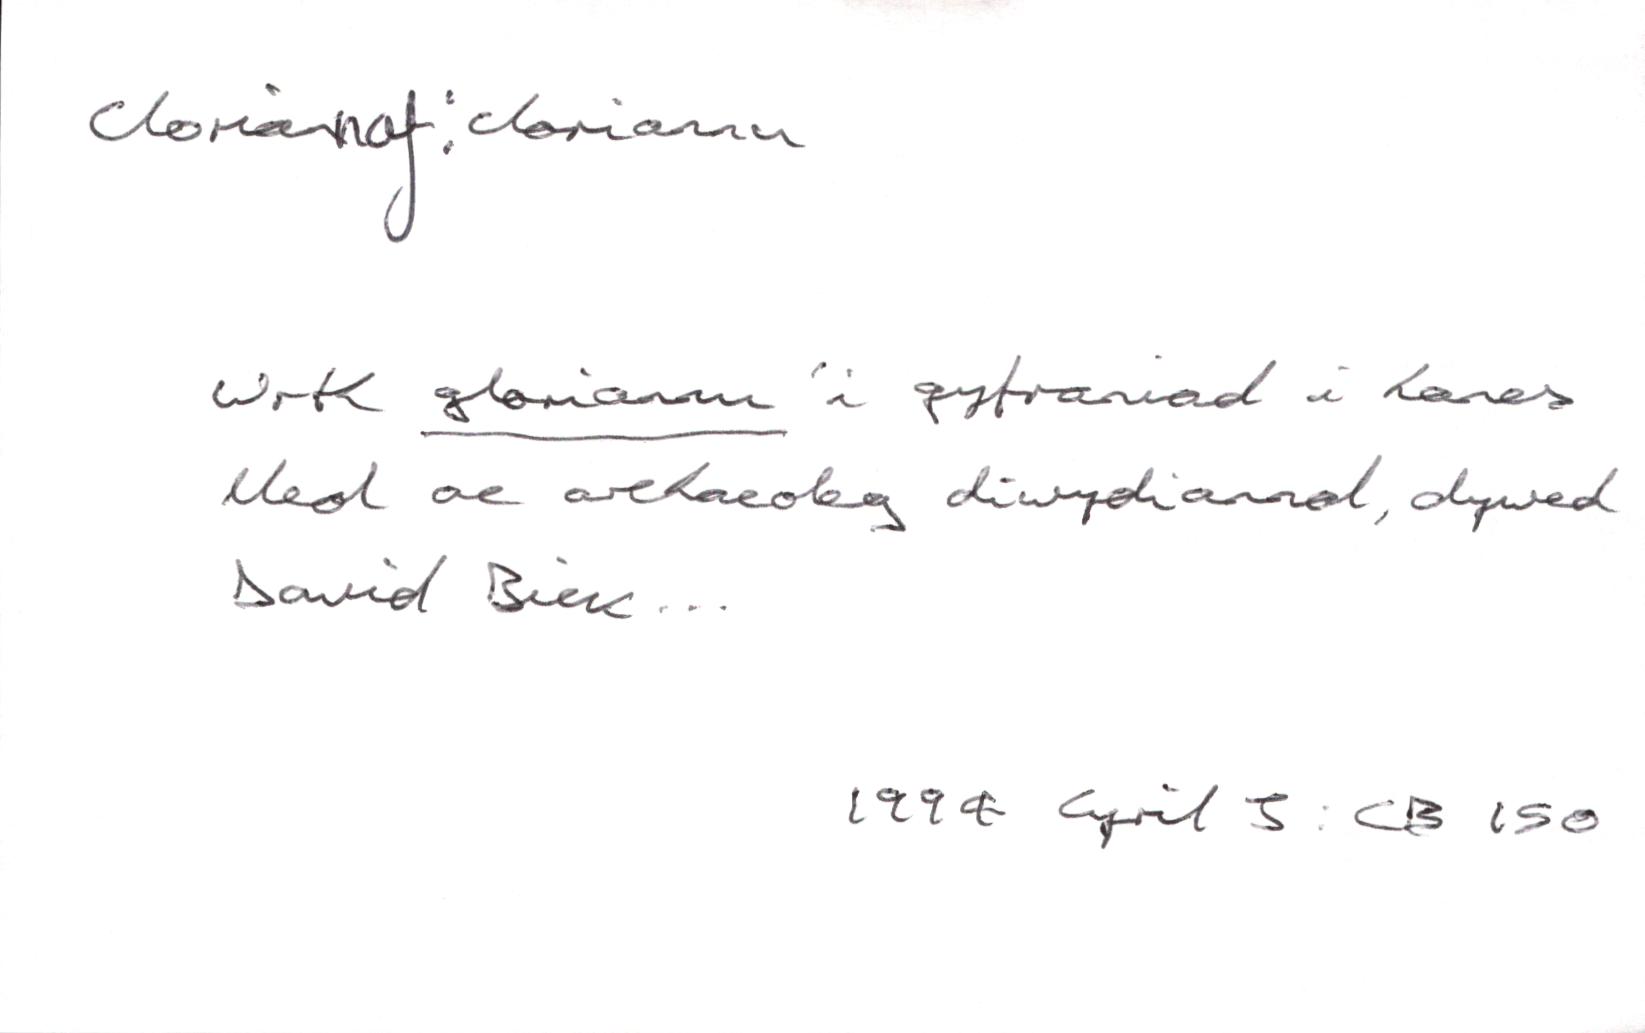 cloriannaf: cloriannu
Wrth gloriannu 'i gyfraniad i hanes
lleol ac archaeoleg diwydiannol, dywed
David Bick...
1994 Cyril J: CB 150